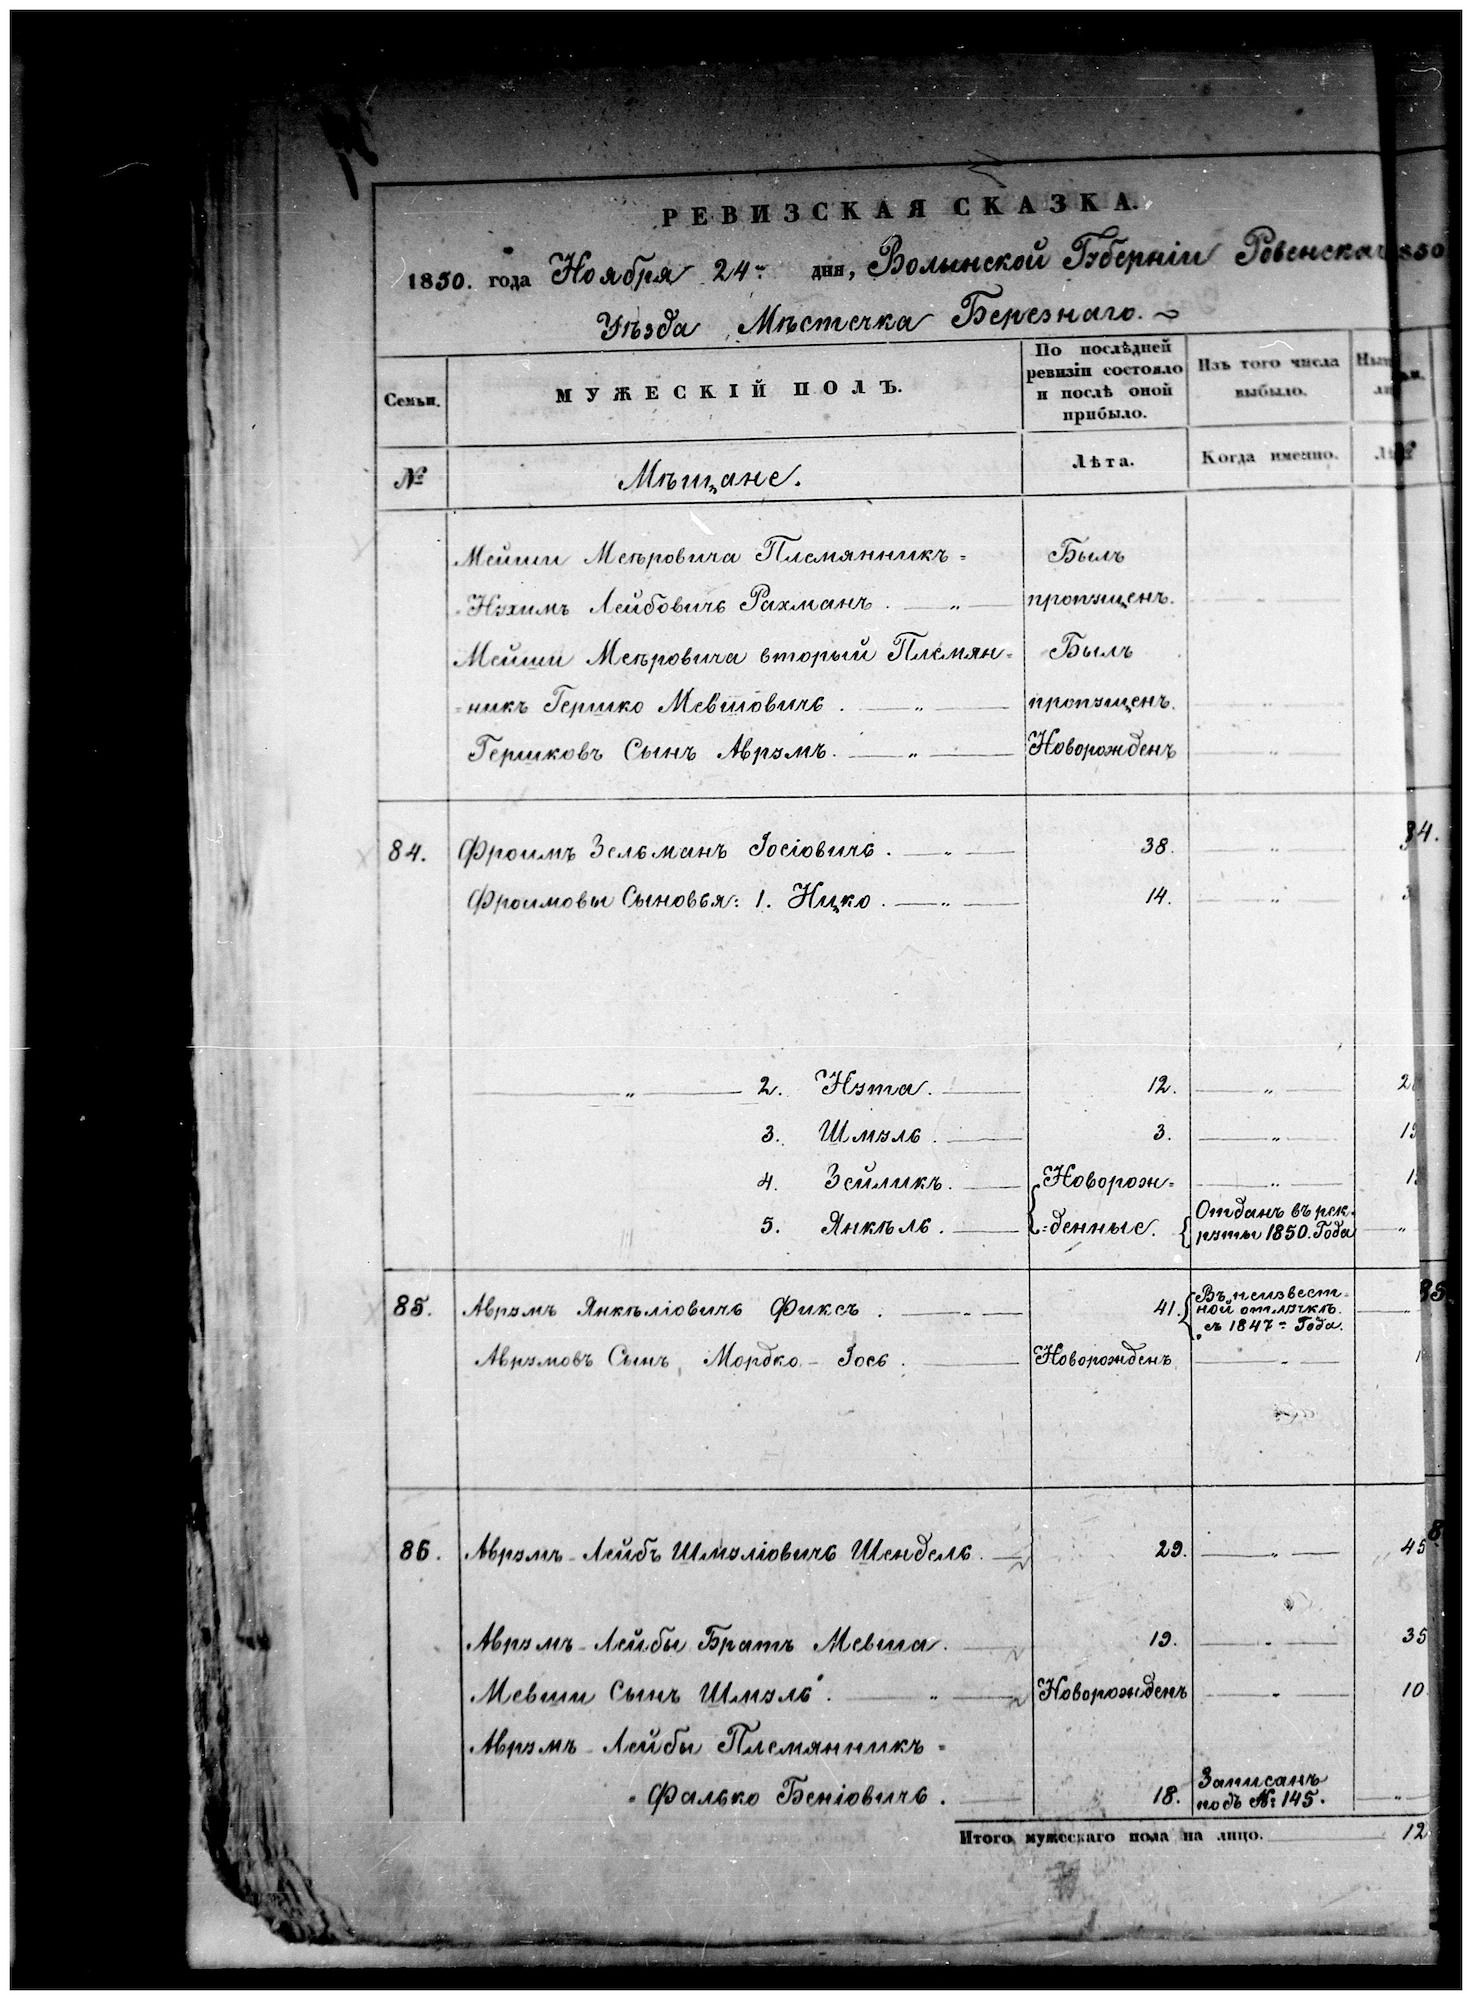 РЕВИЗСКАЯ СКАЗКА.
1850. года Ноября 24 дня, Волынской Губерніи Ровенскаг
Уѣзда Мѣстечка Березнаго.
Семьи. МУЖЕСКІЙ ПОЛЪ. По послѣдней ревизіи состояло и послѣ оной прибыло. Изъ того числа выбыло.
№ Мѣщане. Лѣта. Когда именно.
Мейши Меѣровича Племянникъ = Былъ
Нухимъ Лейбовичь Рахманъ . — „ — пропущенъ.
Мейши Меѣровича вторый Племян= Былъ
=никъ Гершко Мевшовичь . — „ — пропущенъ.
Гершковъ Сынъ Аврумъ. — „ — Новорожденъ
84. Фроимъ Зельманъ Іосіовичь . — „ — 38. — „ —
Фроимовы Сыновья: 1. Ицко . — „ — 14. — „ —
— „ — 2. Нута. — 12. — „ —
3. Шмуль . — 3. — „ —
4. Зейликъ. — Новорож= — „ —
5. Янкѣль. — =денные. Отданъ въ рек-
руты 1850. Года — „
85. Аврумъ Янкѣліовичь Фиксъ . — 41. Въ неизвест=
ной отлучкѣ
съ 1847 Года.
Аврумовъ Сынъ, Мордко - Іось . — Новорожденъ — „ —
86. Аврумъ - Лейбъ Шмуліовичь Шендель. — 29. — „ — 45
Аврумъ - Лейбы Братъ Мевша. — 19. — „ — 35
Мевши Сынъ Шмуль . — „ — Новорожденъ — „ — 10
Аврумъ - Лейбы Племянникъ =
= Фалько Беніовичь . — 18. Записанъ
подъ №: 145. — „ —
Итого мужескаго пола на лицо. — 12